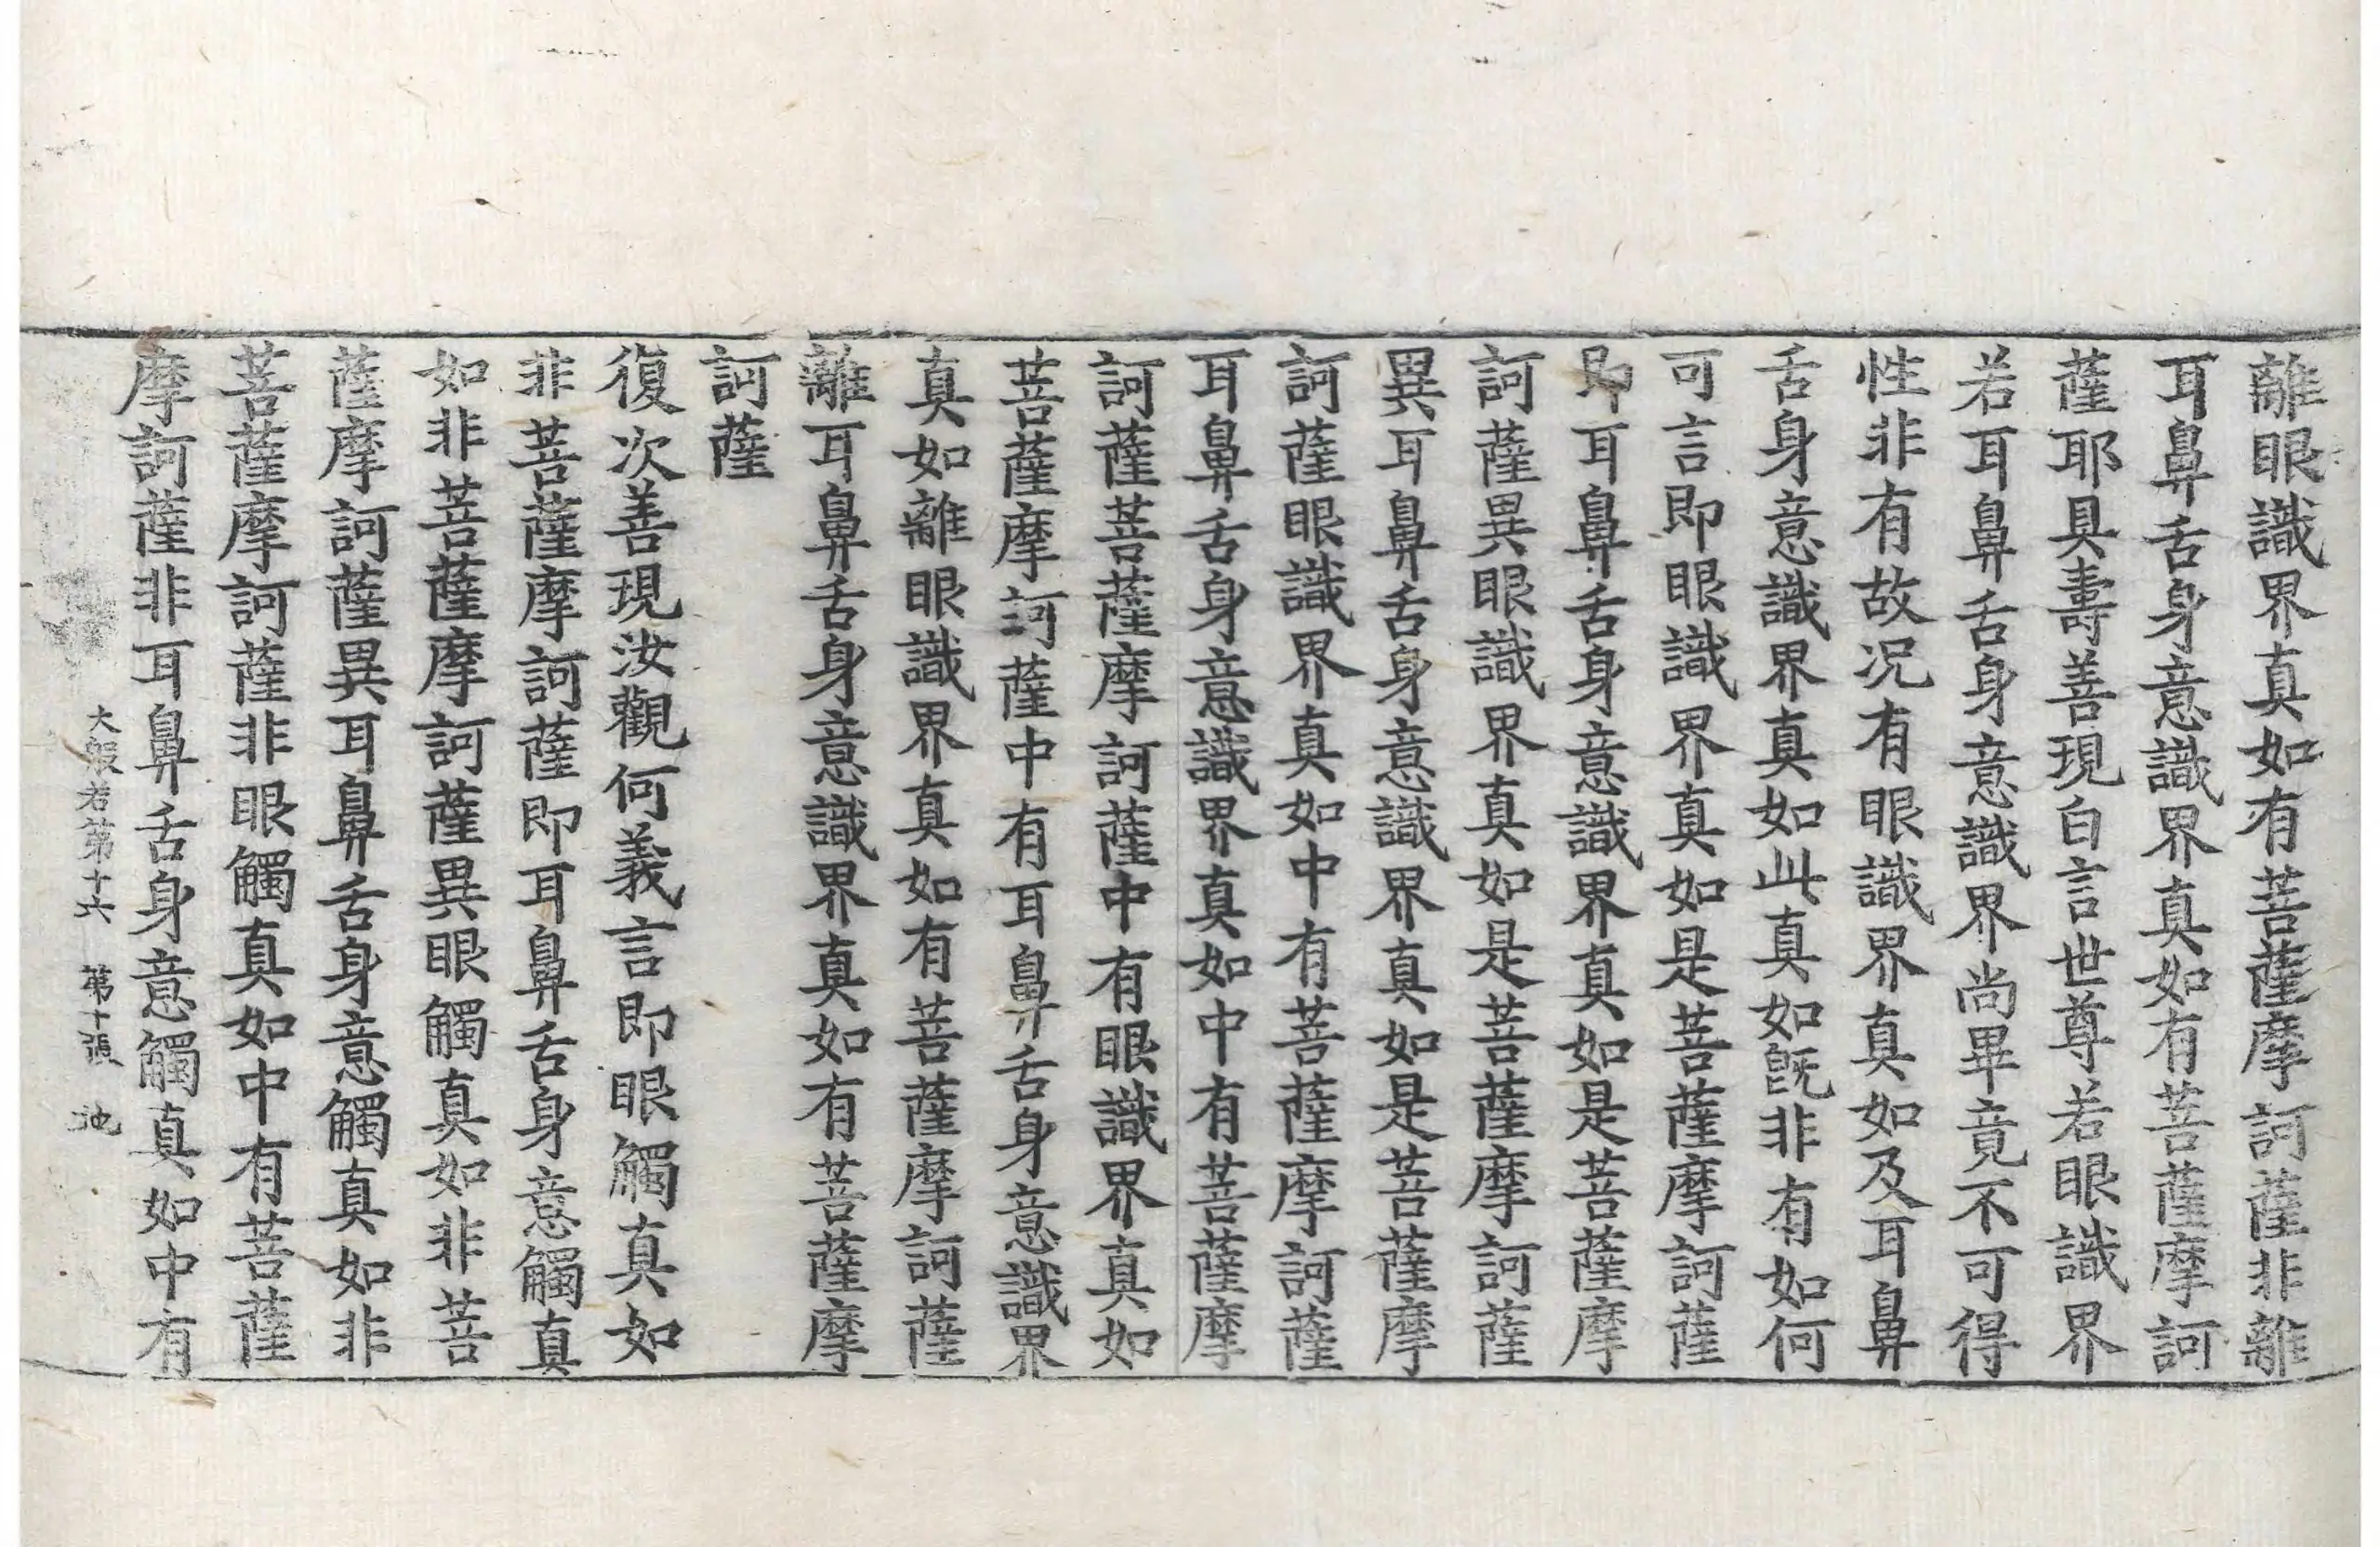 離眼識界真如有菩薩摩訶薩非離
耳鼻舌身意識界真如有菩薩摩訶
薩耶具壽善現白言世尊若眼識界
若耳鼻舌身意識界尚畢竟不可得
性非有故况有眼識界真如及耳鼻
舌身意識界真如此真如旣非有如何
可言即眼識界真如是菩薩摩訶薩
即耳鼻舌身意識界真如是菩薩摩
訶薩異眼識界真如是菩薩摩訶薩
異耳鼻舌身意識界真如是菩薩摩
訶薩眼識界真如中有菩薩摩訶薩
耳鼻舌身意識界真如中有菩薩摩
訶薩菩薩摩訶薩中有眼識界真如
菩薩摩訶薩中有耳鼻舌身意識界
真如離眼識界真如有菩薩摩訶薩
離耳鼻舌身意識界真如有菩薩摩
訶薩
復次善現汝觀何義言即眼觸真如
非菩薩摩訶薩即耳鼻舌身意觸真
如非菩薩摩訶薩異眼觸真如非菩
薩摩訶薩異耳鼻舌身意觸真如非
菩薩摩訶薩非眼觸真如中有菩薩
摩訶薩非耳鼻舌身意觸真如中有
大般若第十六 第十張